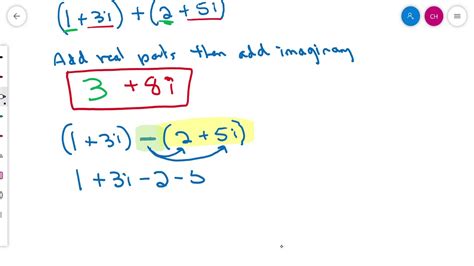 (1 + 3i) + (2 + 5i)
Add real parts then add imaginary
3 + 8i
(1 + 3i) - (2 + 5i)
1 + 3i - 2 - 5
CH